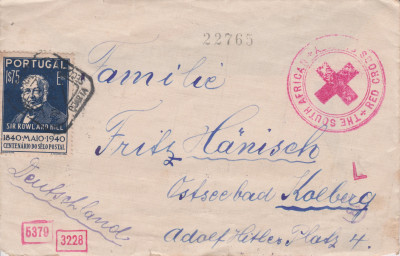 22765
PORTUGAL
1$75 Esc.
SIR ROWLAND HILL
1840-MAIO-1940
CENTENÁRIO DO SÊLO POSTAL
THE SOUTH AFRICAN RED CROSS
Familie
Fritz Hänisch
Ostseebad Kolberg
Adolf Hitler Platz 4.
Deutschland
L
5379
3228